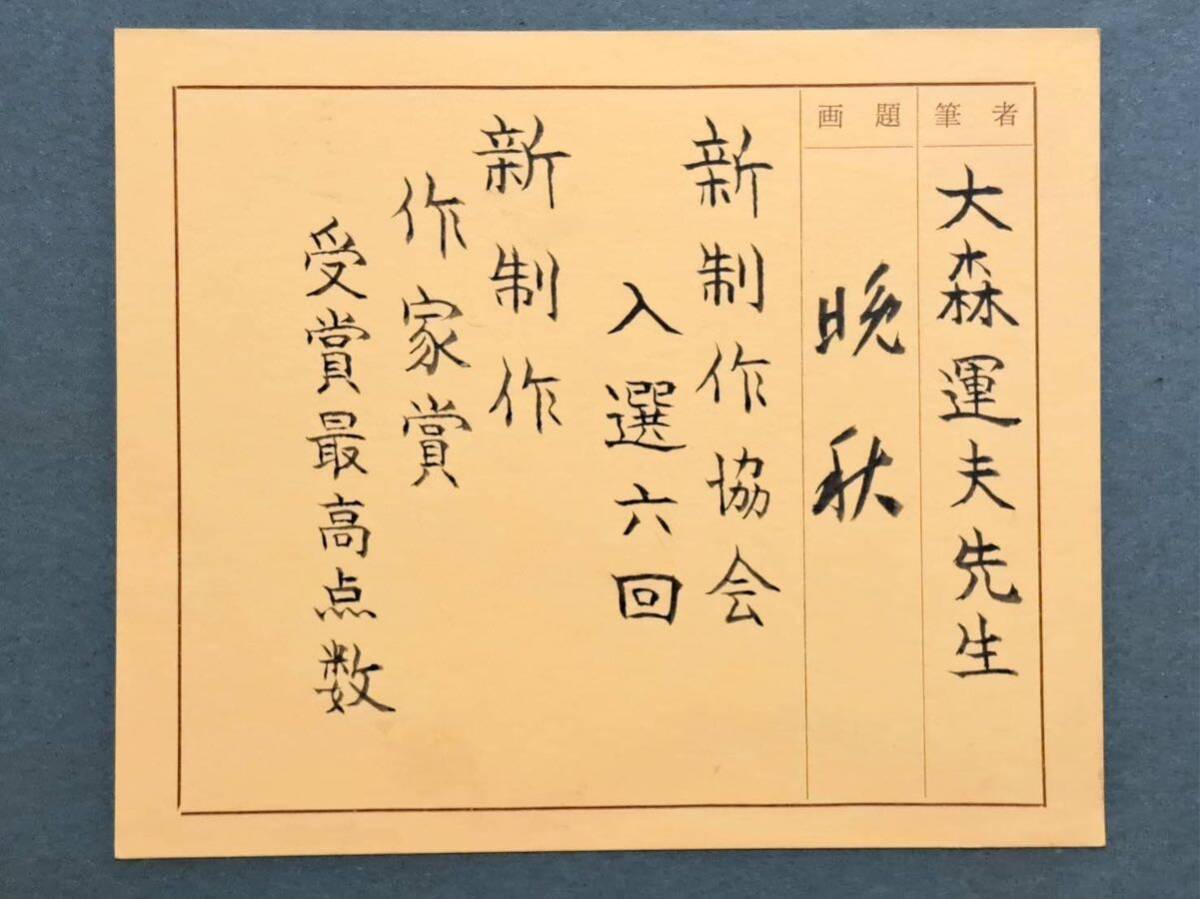 筆者
大森運夫先生
画題
晩秋
新制作協会
入選六回
新制作
作家賞
受賞最高点数